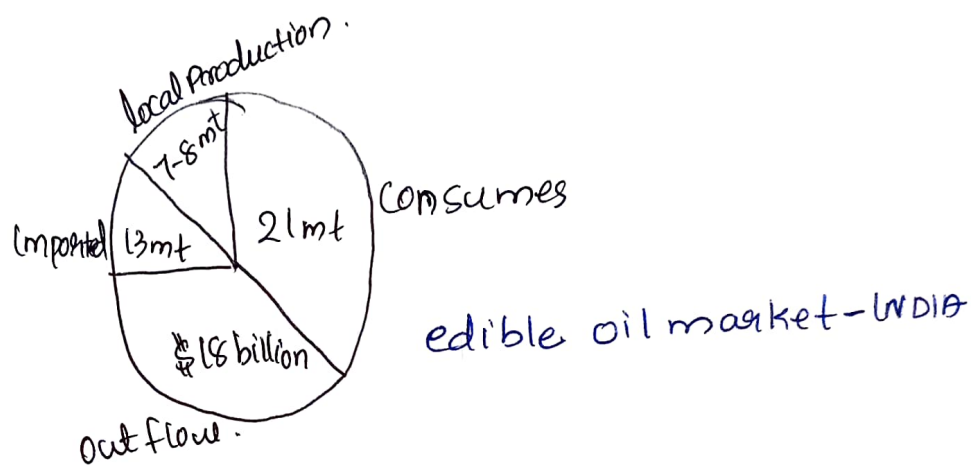 local Production.
7-8mt
Consumes
21mt
Imported
13mt
$18 billion
out flow.
edible oil market-INDIA